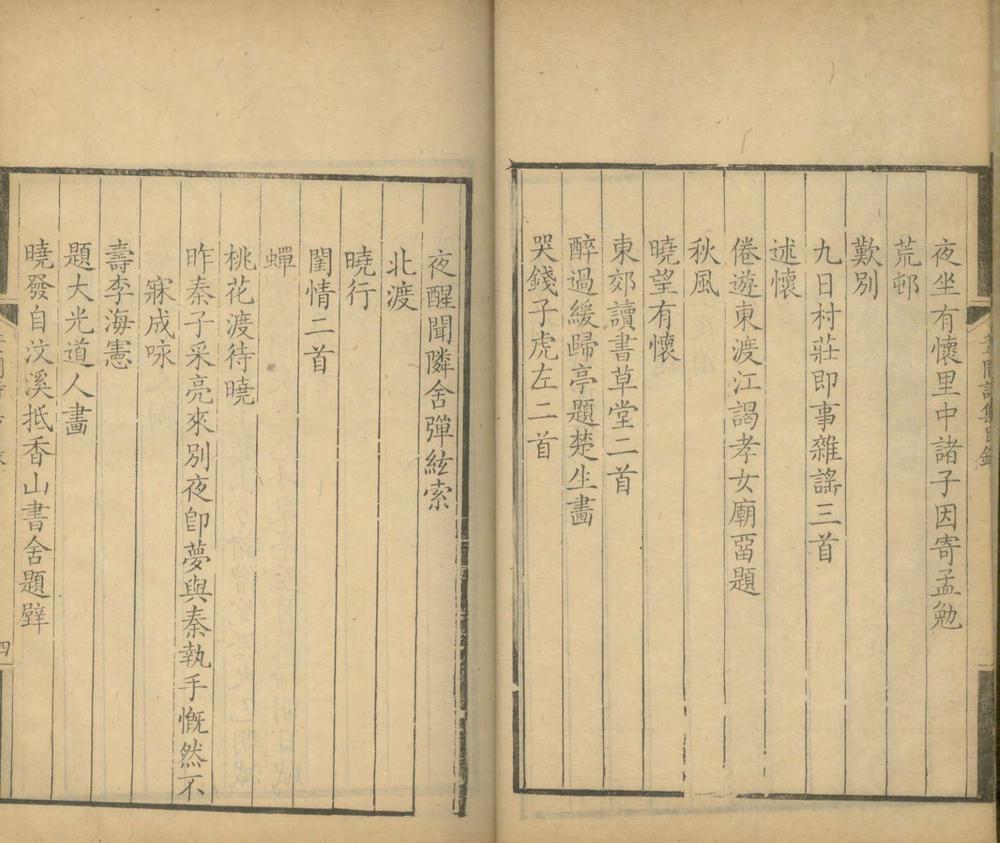 夜坐有懷里中諸子因寄孟勉
荒邨
歎別
九日村莊即事雜謠三首
述懷
倦遊東渡江謁孝女廟畱題
秋風
曉望有懷
東郊讀書草堂二首
醉過緩歸亭題楚生畵
哭錢子虎左二首
夜醒聞隣舍彈絃索
北渡
曉行
閨情二首
蟬
桃花渡待曉
昨秦子采亮來別夜卽夢與秦執手慨然不
寐成咏
壽李海憲
題大光道人畵
曉發自汶溪抵香山書舍題壁
四